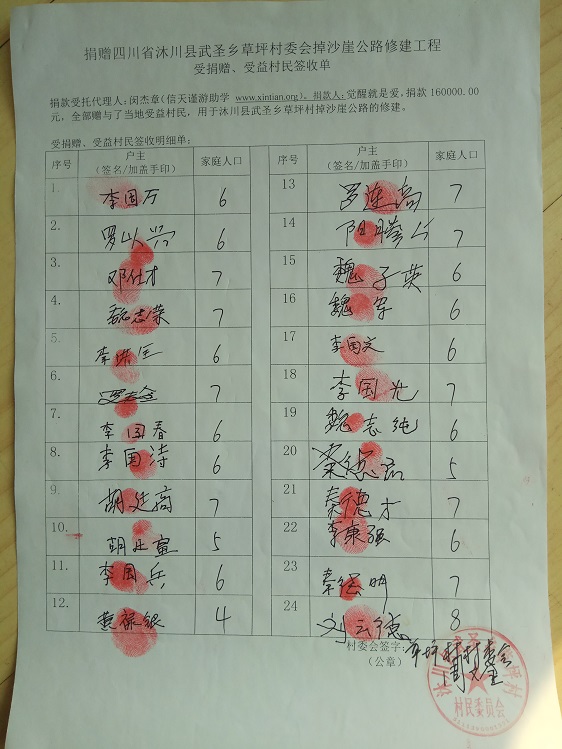 捐赠四川省沐川县武圣乡草坪村委会掉沙崖公路修建工程
受捐赠、受益村民签收单
捐款受托代理人:闵杰章(信天谨游助学 www.xintian.org)。捐款人:觉醒就是爱,捐款 160000.00
元,全部赠与了当地受益村民,用于沐川县武圣乡草坪村掉沙崖公路的修建。
受捐赠、受益村民签收明细单:
序号 户主 (签名/加盖手印) 家庭人口 序号 户主 (签名/加盖手印) 家庭人口
1. 李国万 6 13 罗连高 7
2. 罗以兴 6 14 阳腾公 7
3. 邓仕才 7 15 魏子英 6
4. 魏志荣 7 16 魏军 6
5. 李洪 6 17 李国文 6
6. 7 18 李国光 7
7. 李国春 6 19 魏志纯 6
8. 李国涛 6 20 秦德 5
9. 胡廷高 7 21 秦德才 7
10. 胡廷宣 5 22 李康强 6
11. 李国兵 6 23 秦德明 7
12. 黄保银 4 24 刘云德 8
村委会签字:草坪村村委会
(公章) 周
沐川县武圣乡草坪村
村民委员会